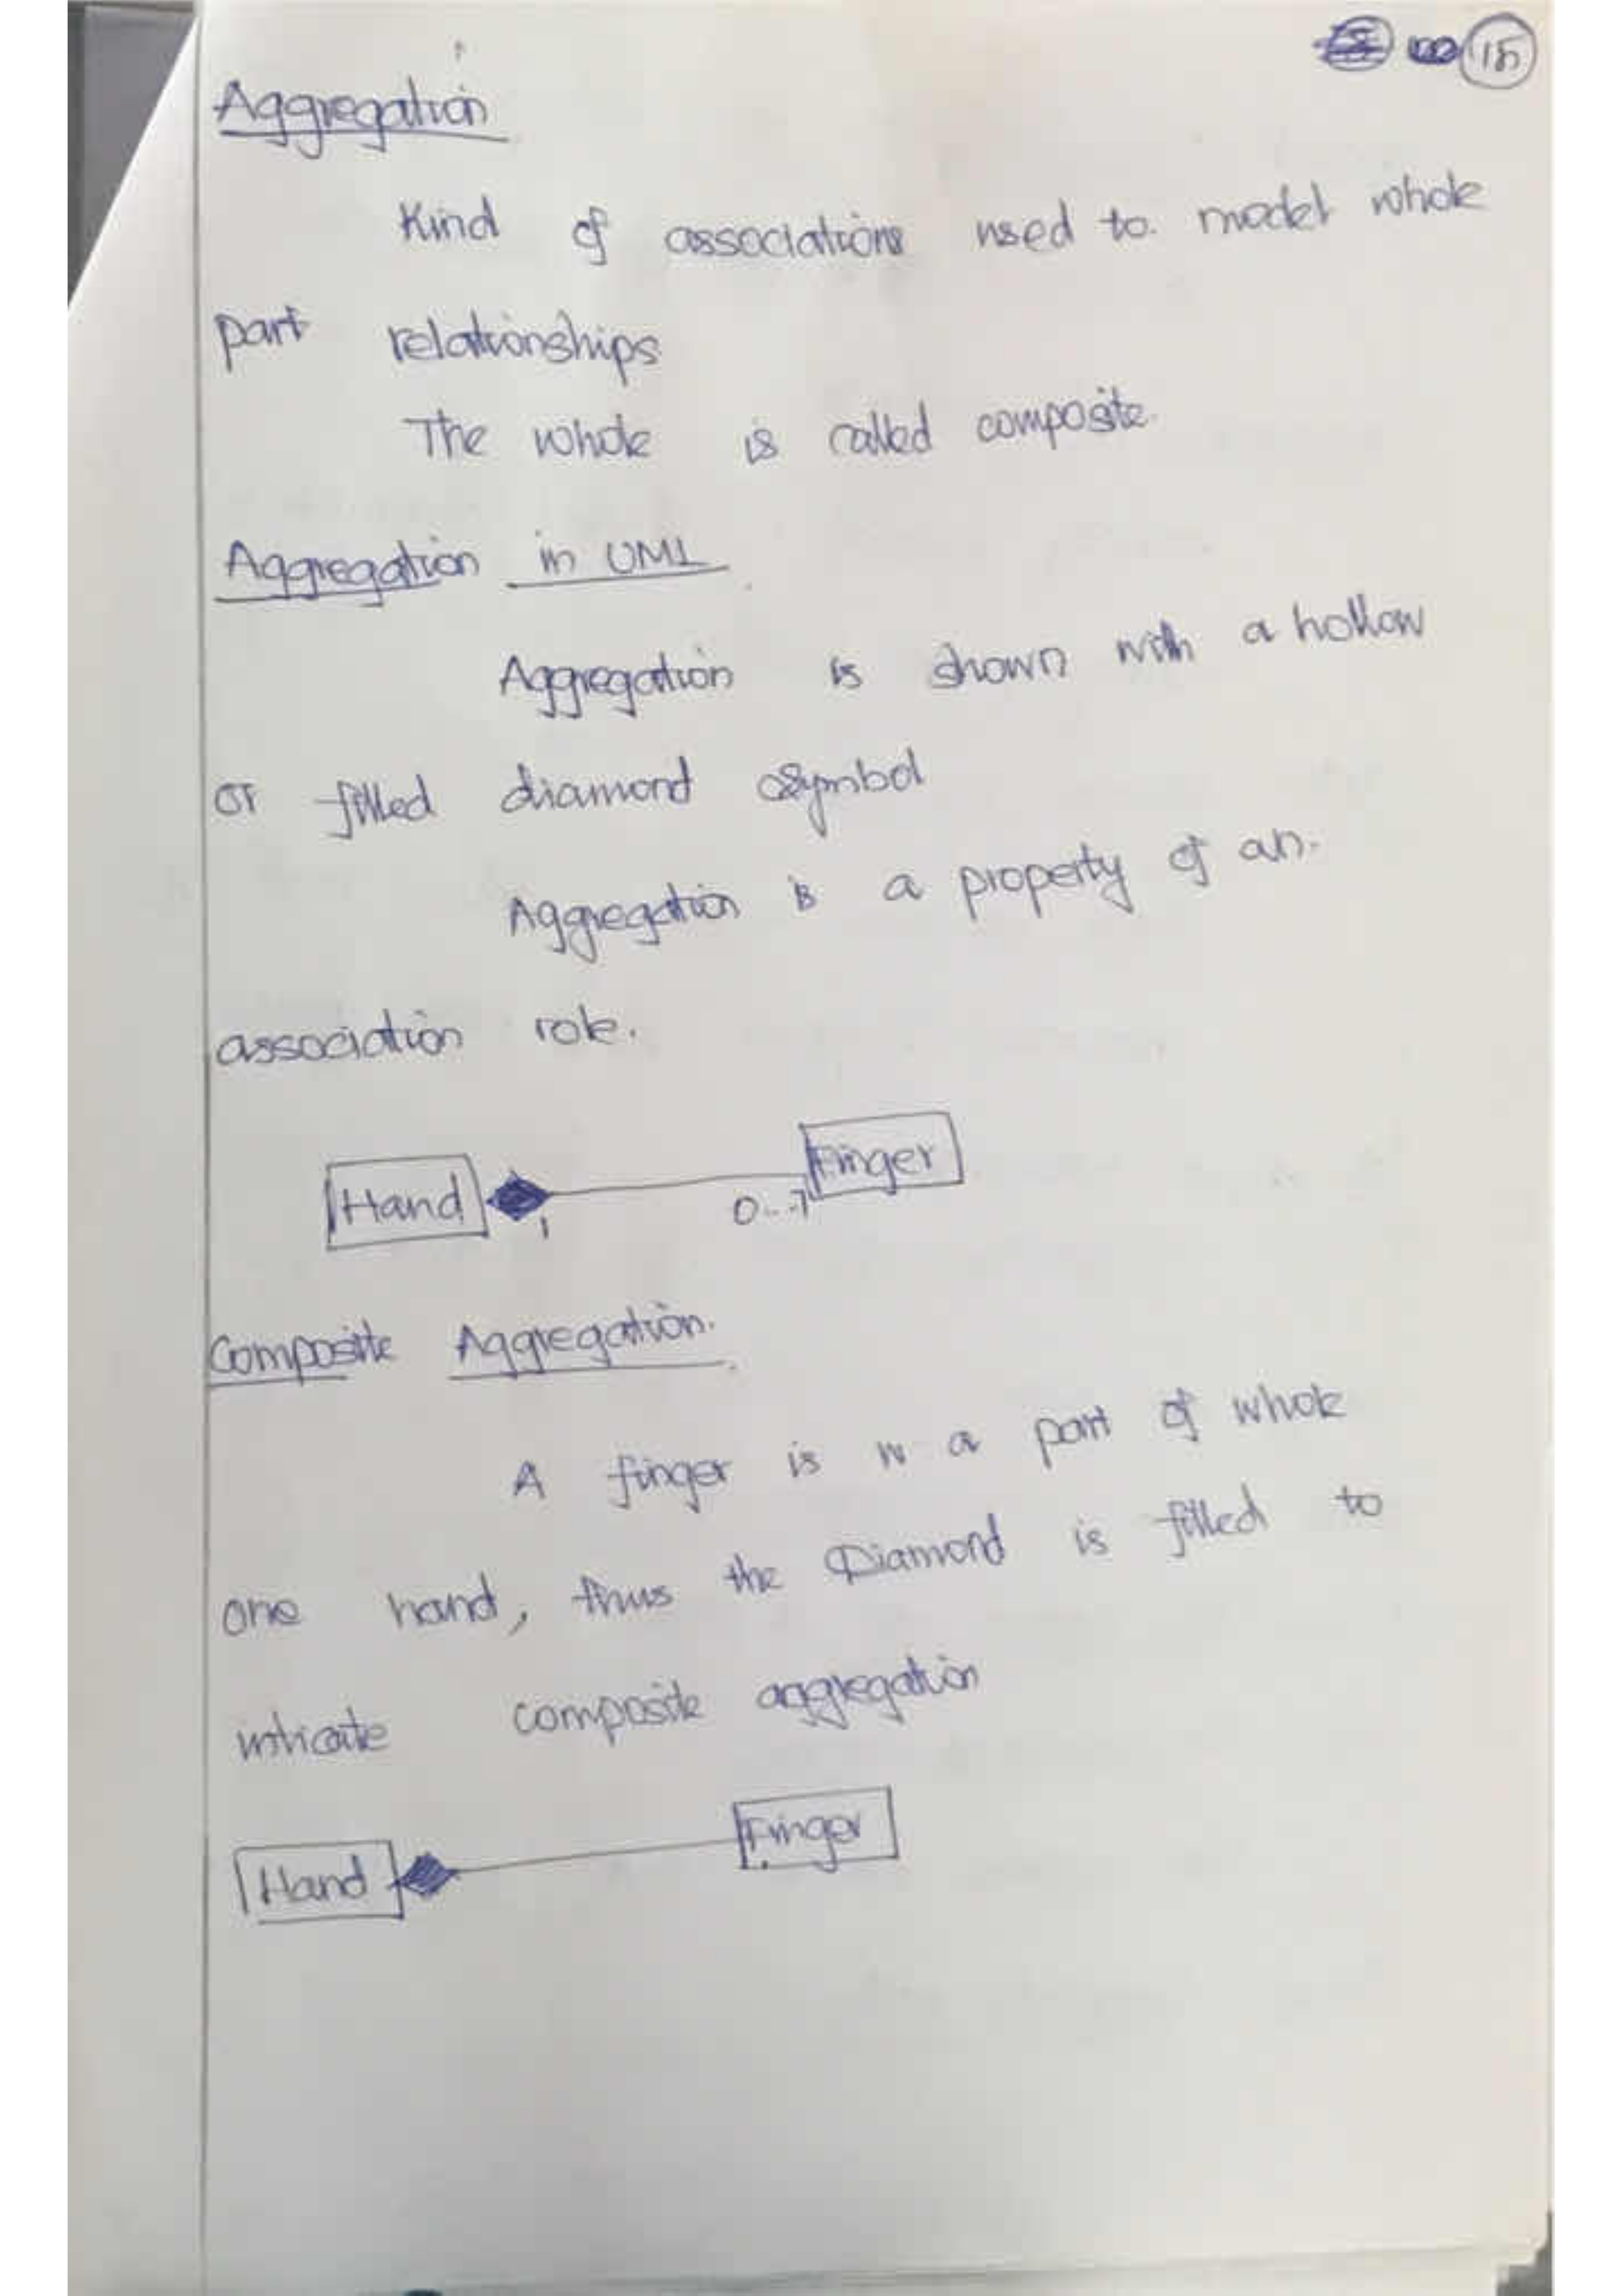 15
Aggregation
Kind of associations used to. model whole
part relationships
The whole is called composite.
Aggregation in UML
Aggregation is shown with a hollow
or filled diamond symbol
Aggregation is a property of an.
association role.
Hand 1 0...7 Finger
Composite Aggregation.
A finger is a part of whole
one hand, thus the Diamond is filled to
intricate composite aggregation
Hand Finger